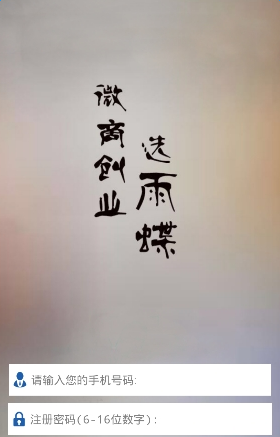 微商创业
选雨蝶
请输入您的手机号码:
注册密码(6-16位数字):